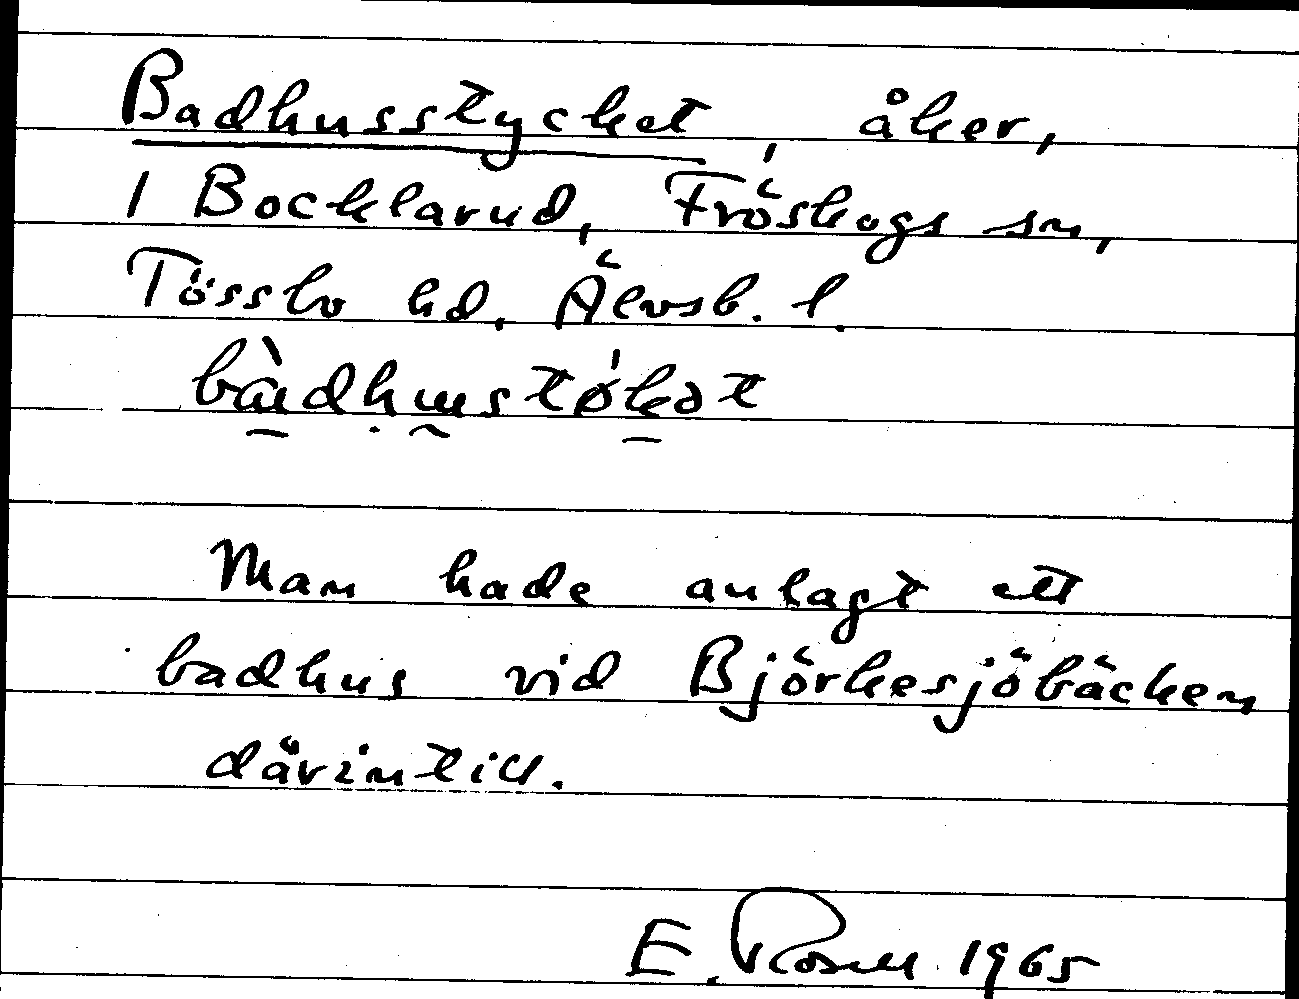 Badhusstycket, åker,
i Bocklarud, Fröskogs sn,
Tössbo hd, Älvsb. l.
Man hade anlagt ett
badhus vid Björkesjöbäcken
därintill.
E. Rosell 1965